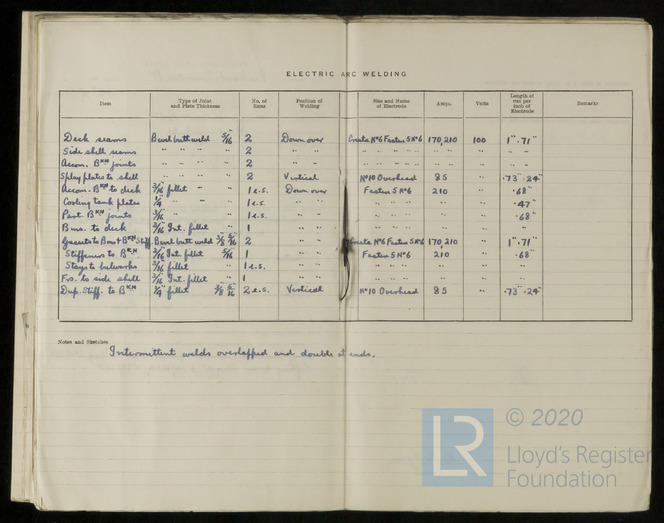 ELECTRIC ARC WELDING
Item | Type of Joint and Plate Thickness | No. of Runs | Position of Welding | Size and Name of Electrode | Amps. | Volts | Length of run per inch of Electrode | Remarks
Deck seams | Bevel butt weld 5/16" | 2 | Down over | No 6 Fastex 5 No 6 | 170,210 | 100 | 1" .71"
Side shell seams | " " " " | 2 | " " | " " " " | " " | " | " "
Accom. BKH joints | " " " " | 2 | " " | " " " " | " " | " | " "
Splay plates to shell | " " " " | 2 | Vertical | No 10 Overhead | 85 | " | .73" .24"
Accom. BKH to deck | 3/16" fillet " " | 1 e.s. | Down over | Fastex 5 No 6 | 210 | " | .68"
Cooling tank plates | 1/4" " " | 1 e.s. | " " | " " " | " | " | .47"
Part. BKH joints | 3/16" " " | 1 e.s. | " " | " " " | " | " | .68"
Bms. to deck | 3/16" Int. fillet " | 1 | " " | " " " | " | " | "
Gussets to Bms + BKH Stiff. | Bevel butt weld 3/8" 5/16" | 2 | " " | No 6 Fastex 5 No 6 | 170,210 | " | 1" .71"
Stiffeners to BKH | 3/16" Int. fillet 5/16" | 1 | " " | Fastex 5 No 6 | 210 | " | .68"
Stays to bulworks | 3/16" fillet " | 1 e.s. | " " | " " " | " | " | "
Frs. to side shell | 3/16" Int. fillet " | 1 | " " | " " " | " | " | "
Dup. Stiff. to BKH | 1/4" fillet 3/8" 5/16" | 2 e.s. | Vertical | No 10 Overhead | 85 | " | .73" .24"
Notes and Sketches
Intermittent welds overlapped and double at ends.
© 2020
LR
Lloyd's Register
Foundation